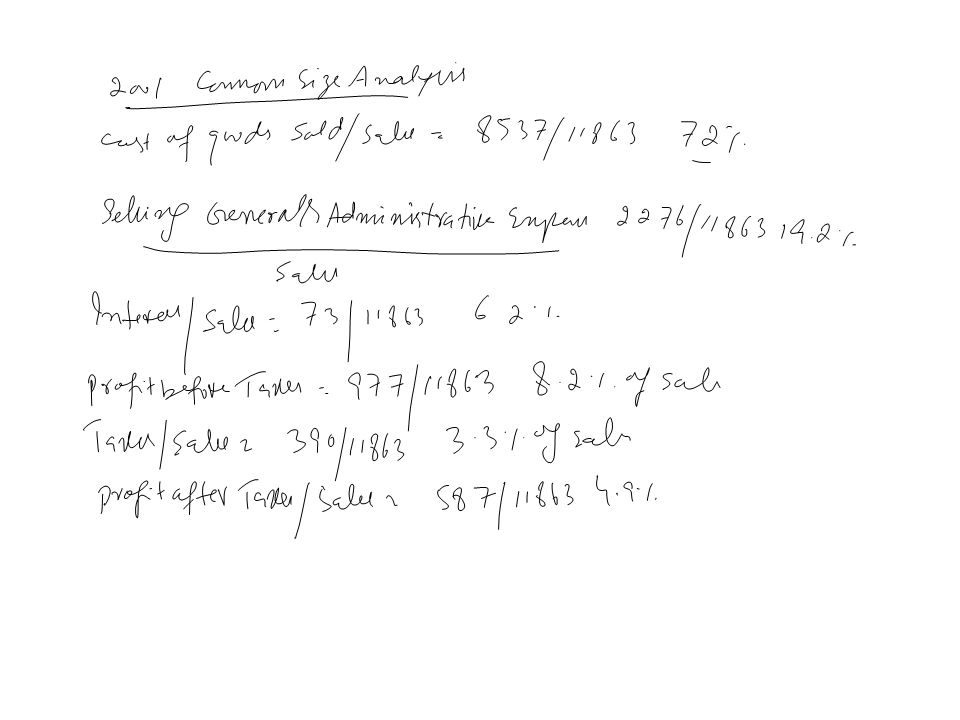 2001 Common Size Analysis
Cost of goods Sold/Sales = 8537/11863 72%
Selling General & Administrative Expenses 2276/11863 19.2%
Sales
Interest/Sales = 73/11863 6 2%
Profit before Taxes = 977/11863 8.2% of sales
Taxes/Sales = 390/11863 3.3% of sales
Profit after Taxes/Sales = 587/11863 4.9%